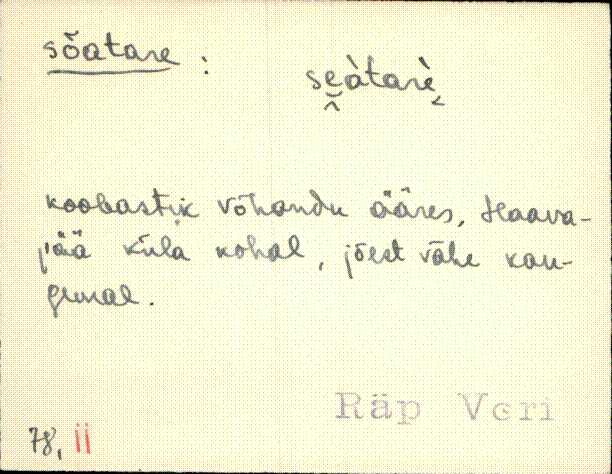 sõatare :
seàtarè
koobastik võhandu ääres, Haava-
pää küla kohal, jõest vähe kau-
gemal.
Räp Veri
78, ii